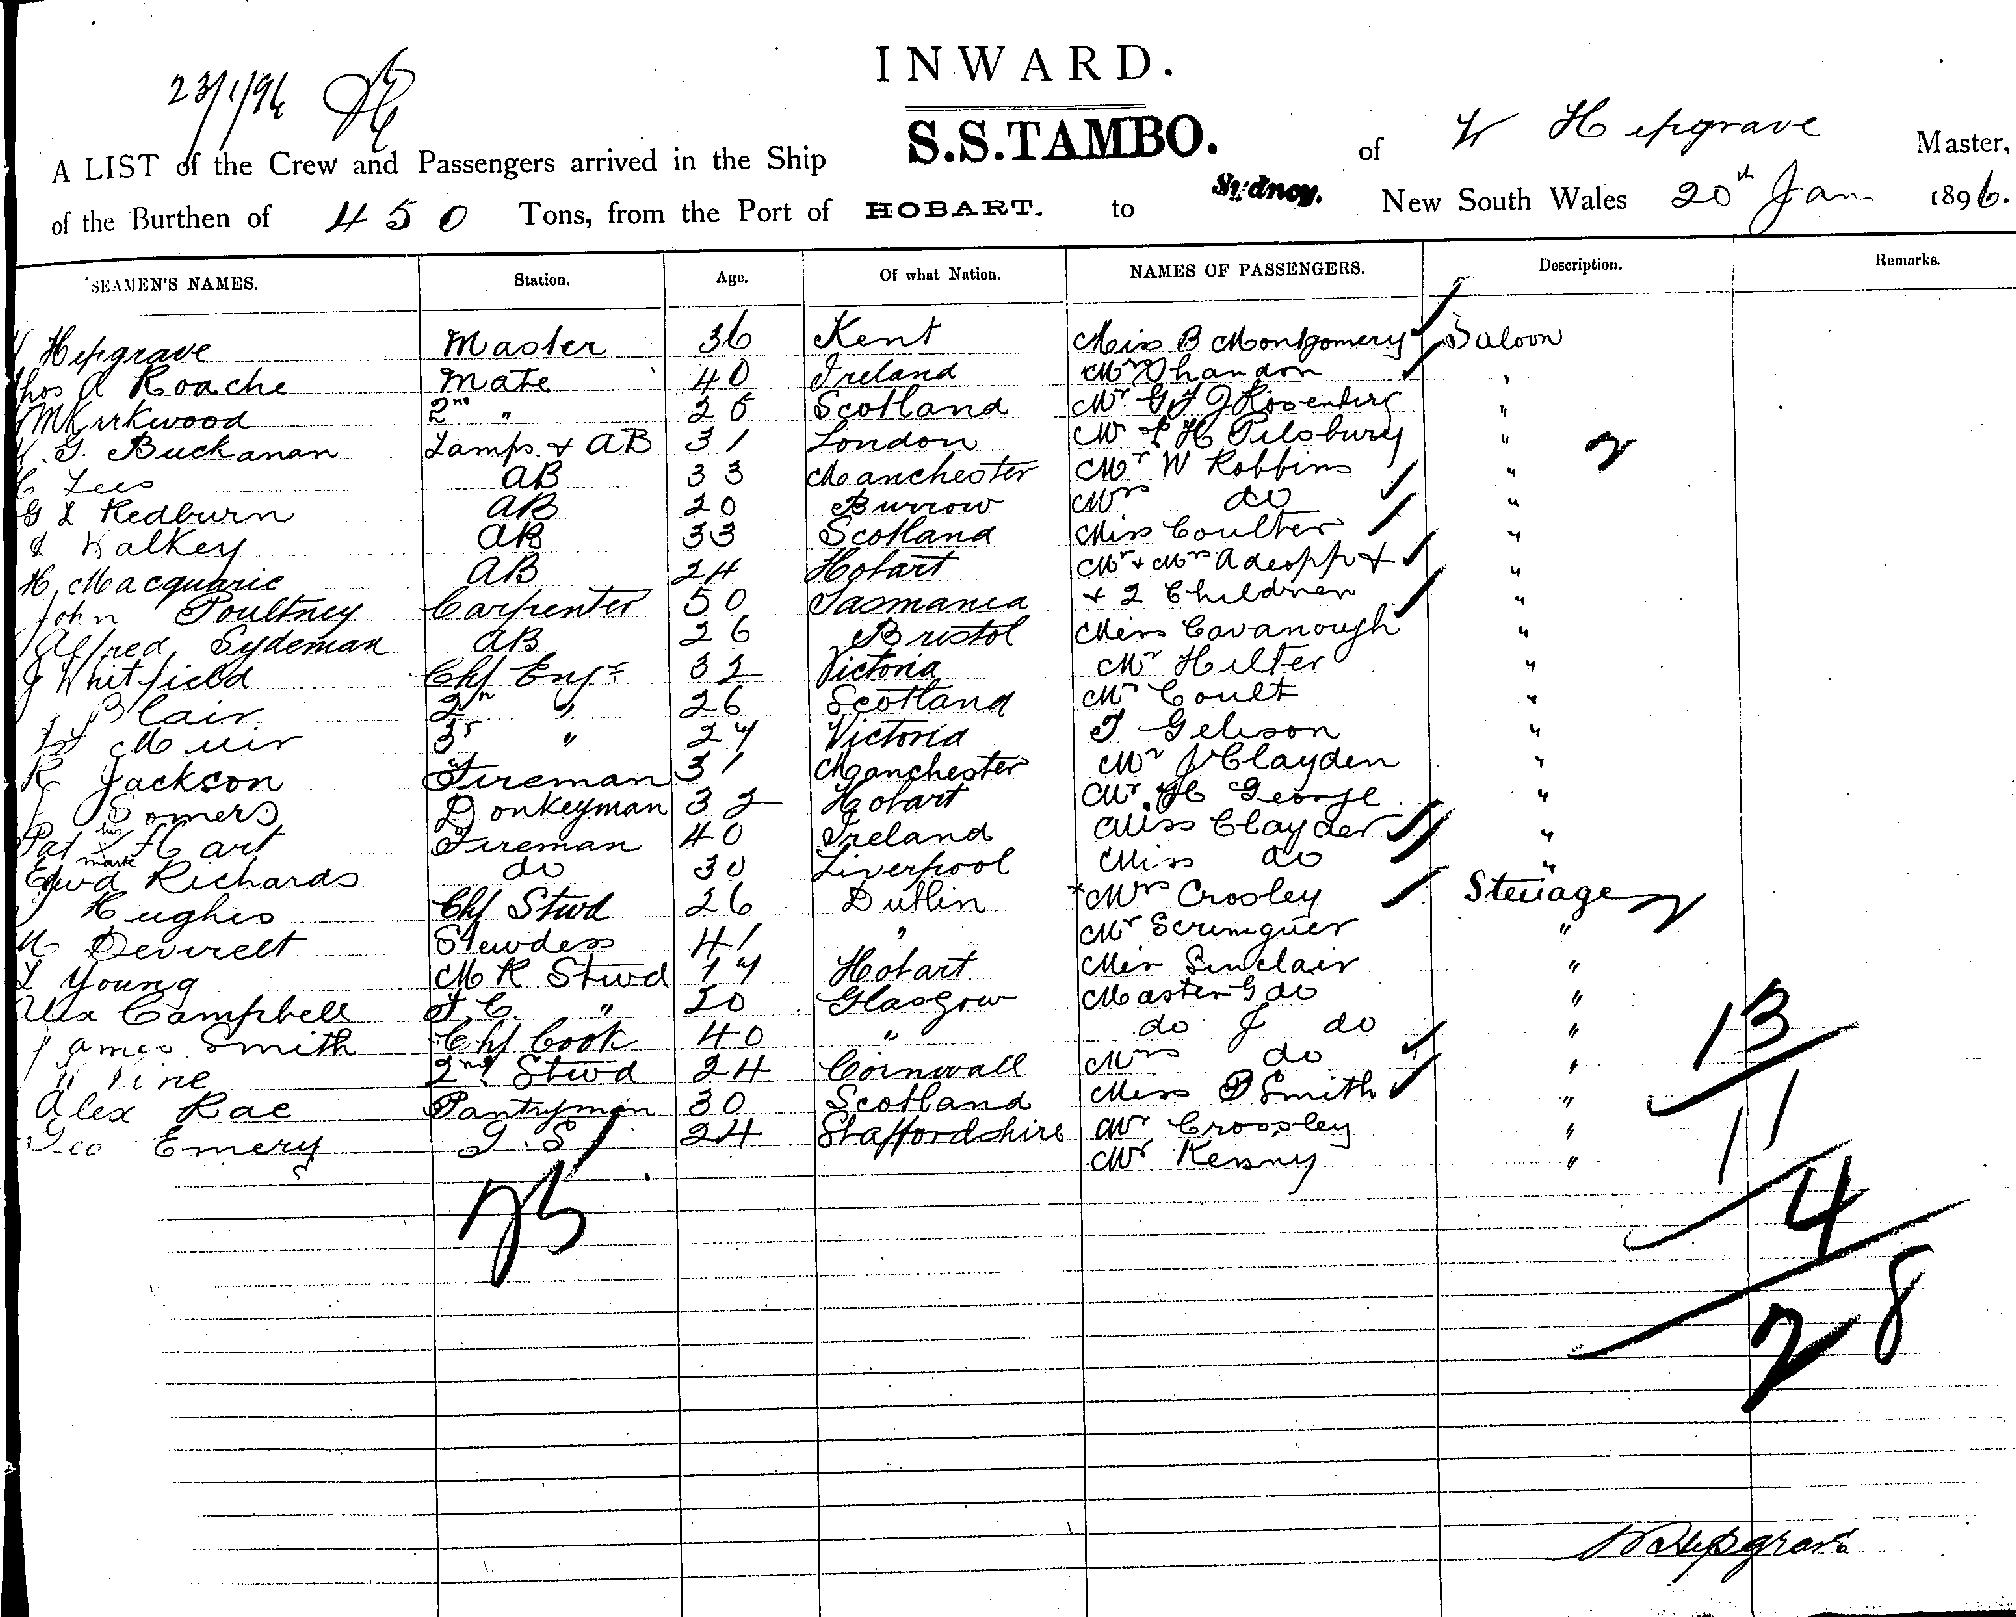 INWARD.
23/1/96
A LIST of the Crew and Passengers arrived in the Ship S.S. TAMBO. of W Hepgrave Master,
of the Burthen of 450 Tons, from the Port of HOBART. to Sydney. New South Wales 20th Jan 1896.
SEAMEN'S NAMES. Station. Age. Of what Nation. NAMES OF PASSENGERS. Description. Remarks.
Hepgrave Master 36 Kent Miss B Montgomery Saloon
Thos A Roache Mate 40 Ireland Mr Chandon "
M Kirkwood 2nd " 25 Scotland Mr G F J Rosenberg "
G. Buchanan Lamps & AB 31 London Mr L H Pilsbury " 2
C Lees AB 33 Manchester Mr W Robbins "
G L Redburn AB 20 Burrow Mrs do "
Walkey AB 33 Scotland Miss Coulter "
H Macquarie AB 24 Hobart Mr & Mrs &
John Poultney Carpenter 50 Tasmania + 2 Children "
Alfred Sydeman AB 26 Bristol Miss Cavanough "
J Whitfield Chf Engr 32 Victoria Mr Hilter "
Blair 2nd " 26 Scotland Mr Coult "
Muir 3r " 27 Victoria T Gelison "
R Jackson Fireman 31 Manchester Mr J Clayden "
Somers Donkeyman 32 Hobart Mr H George "
Pat his x mark Hart Fireman 40 Ireland Miss Clayden "
Edwd Richards do 30 Liverpool Miss do "
J Hughes Chf Stwd 26 Dublin Mrs Crosley Steuage
M Deverell Stewdess 41 " Mr Scrimguer "
L Young M R Stwd 17 Hobart Miss Sinclair "
Alex Campbell F. C. " 20 Glasgow Master G do "
James Smith Chf Cook 40 " do J do " 13
Vine 2nd Stwd 24 Cornwall Mrs do "
Alex Rae Pantryman 30 Scotland Miss P Smith " 11
Geo Emery 24 Staffordshire Mr Crossley "
Mr Kenny "
25 4
28
W Hepgrave